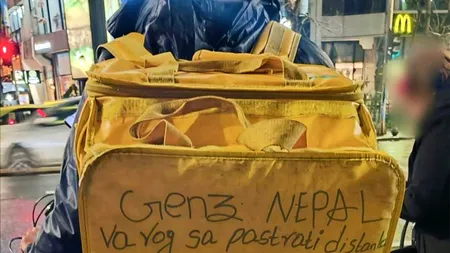 Genz NEPAL
va rog sa pastrati distanta